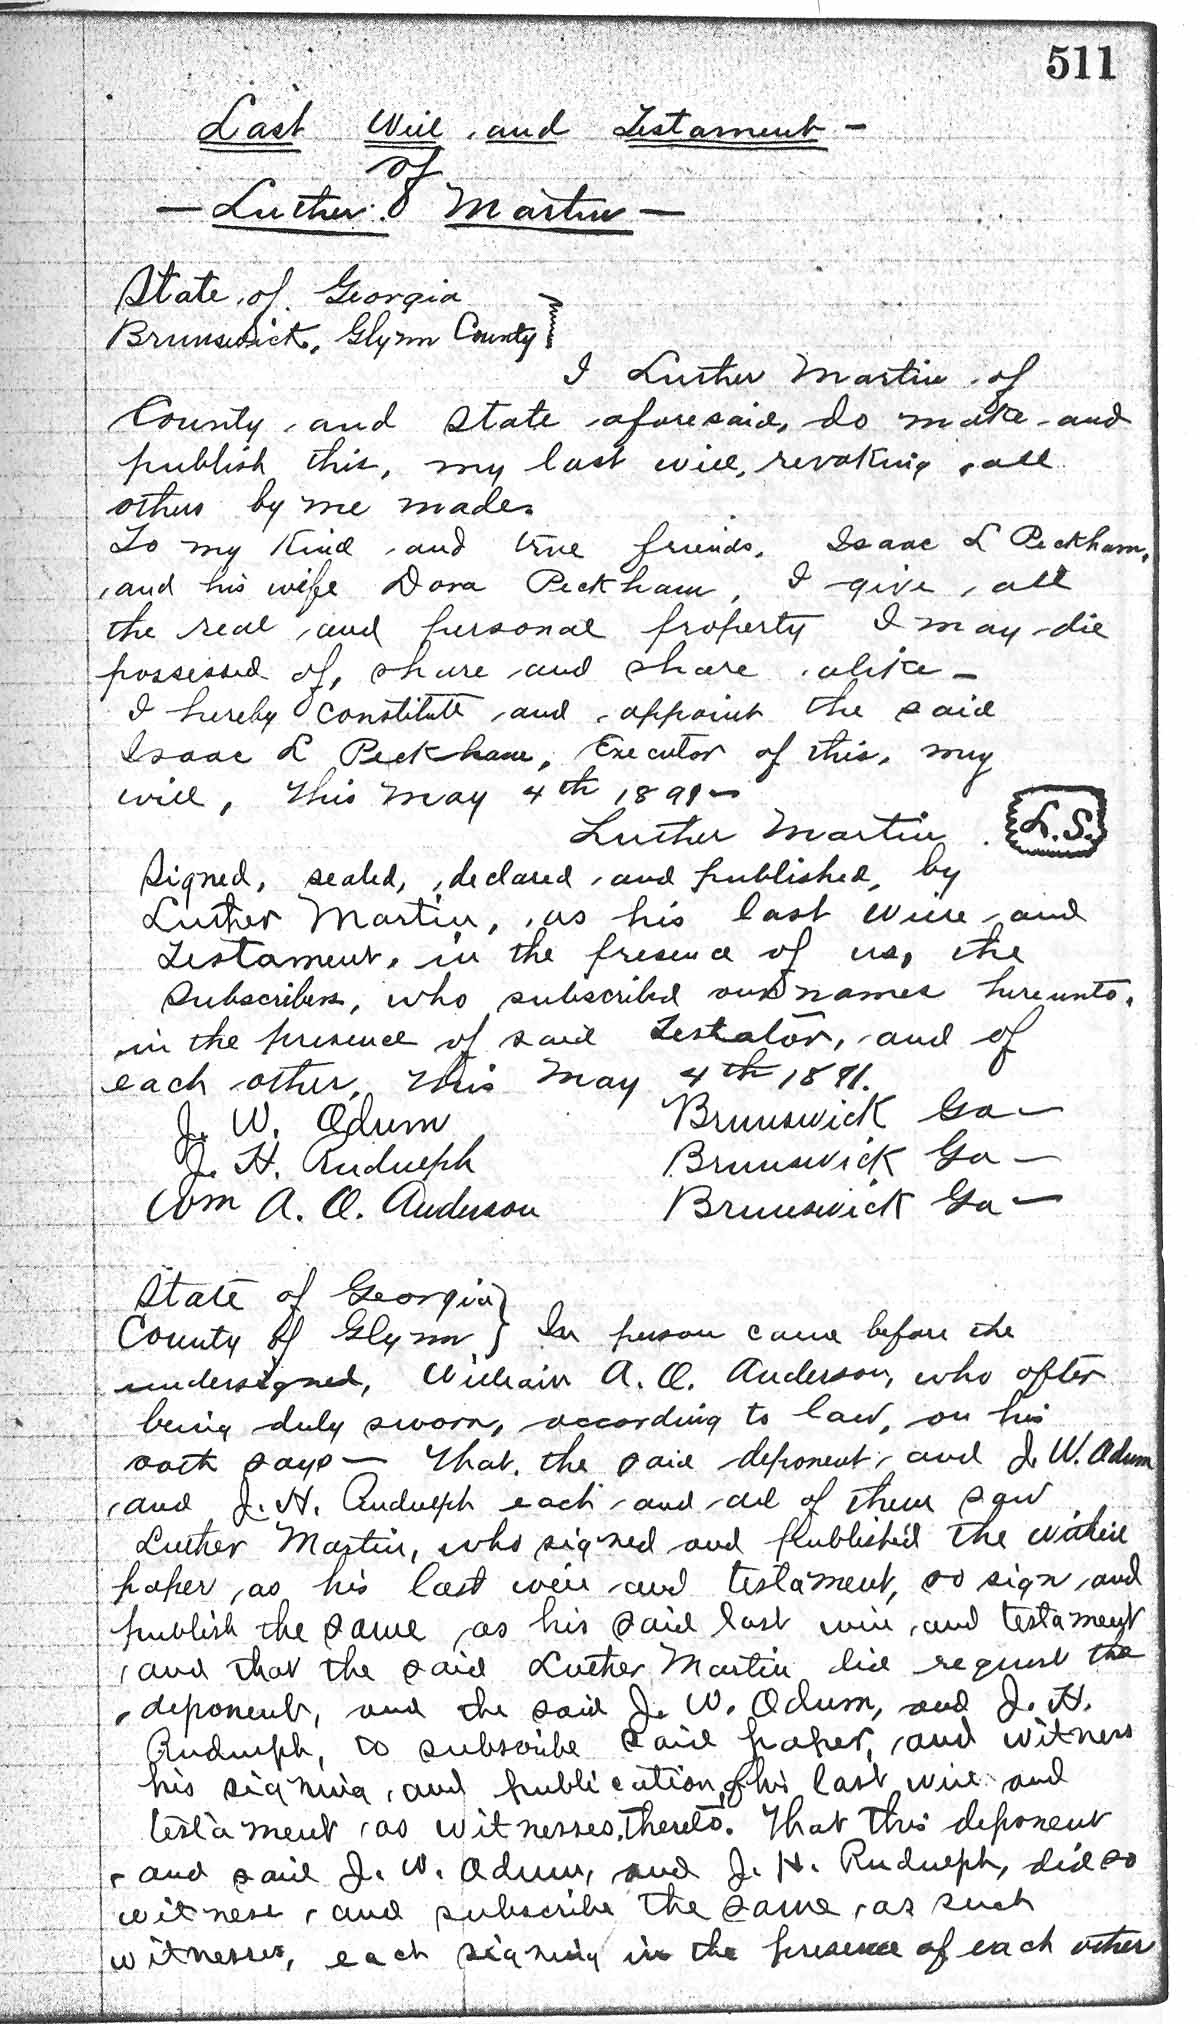 511
Last Will and Testament -
of
- Luther Martin -
State of Georgia
Brunswick, Glynn County }
I Luther Martin of
County and State aforesaid, do make and
publish this, my last will, revoking all
others by me made.
To my kind and true friends, Isaac L Peckham,
and his wife Dora Peckham, I give all
the real and personal property I may die
possessed of, share and share alike -
I hereby constitute and appoint the said
Isaac L Peckham, Executor of this, my
will, this May 4th 1891 -
Luther Martin L.S.
Signed, sealed, declared and published, by
Luther Martin, as his last will and
Testament, in the presence of us, the
Subscribers, who subscribed our names hereunto,
in the presence of said Testator, and of
each other, this May 4th 1891.
J. W. Odum Brunswick Ga -
J. H. Rudulph Brunswick Ga -
Wm A. O. Anderson Brunswick Ga -
State of Georgia }
County of Glynn } In person came before the
undersigned, William A. O. Anderson, who after
being duly sworn, according to law, on his
oath says - That the said deponent, and J. W. Odum
and J. H. Rudulph each and all of them saw
Luther Martin, who signed and Published the within
paper as his last will and testament, so sign and
publish the same as his said last will and testament
and that the said Luther Martin did request the
deponent, and the said J. W. Odum, and J. H.
Rudulph, to subscribe said paper, and witness
his signing and publication of his last will and
testament as witnesses, thereto. That this deponent
and said J. W. Odum, and J. H. Rudulph, did so
witness and subscribe the same as such
witnesses, each signing in the presence of each other